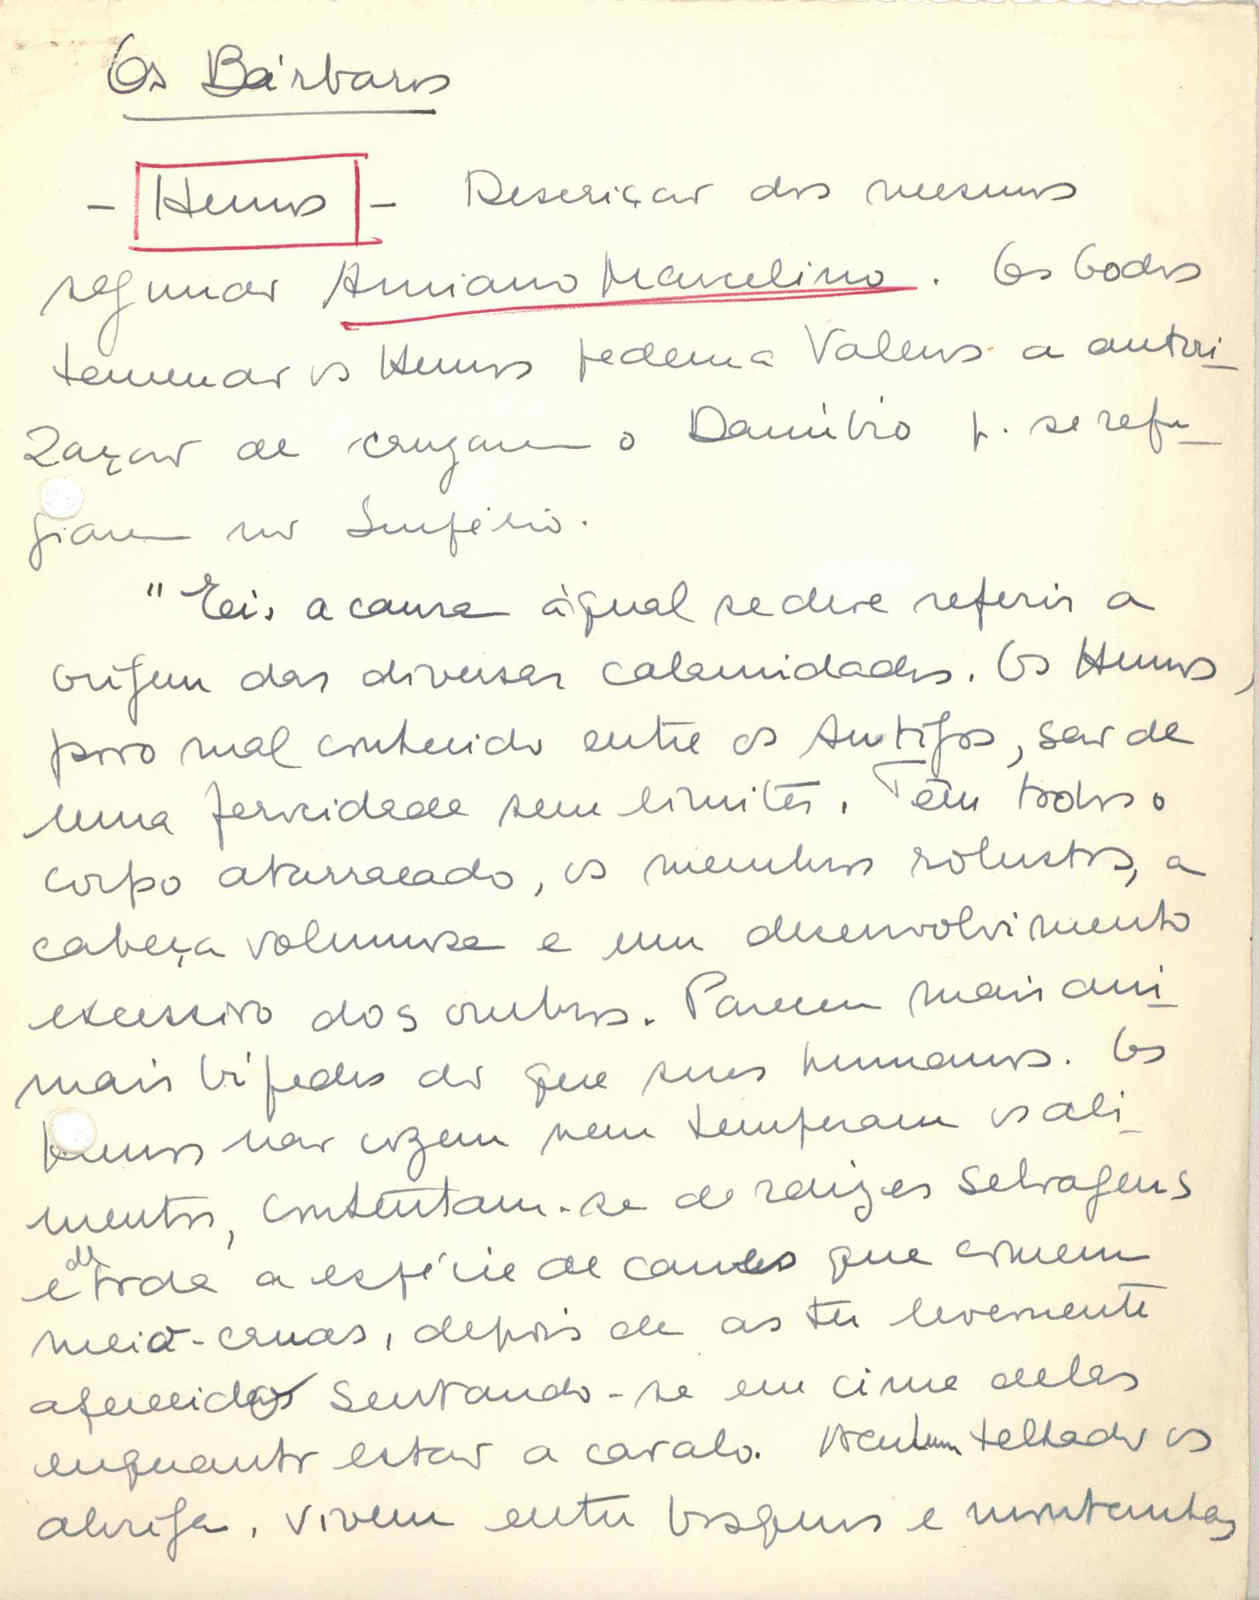 Os Bárbaros
- Hunos - Descriçao dos mesmos
segundo Amiano Marcelino. Os Godos
temendo os Hunos pedem a Valens a autori-
zaçao de cruzarem o Danúbio p. se refu-
giarem no Império.
"Eis a causa à qual se deve referir a
origem das diversas calamidades. Os Hunos,
povo mal conhecido entre os Antigos, sao de
uma ferocidade sem limites. Têm todos o
corpo atarracado, os membros robustos, a
cabeça volumosa e um desenvolvimento
excessivo dos ombros. Parecem mais ani-
mais bípedes do que seres humanos. Os
hunos nao cozem nem temperam os ali-
mentos, contentam-se de raizes selvagens
e de toda a espécie de carnes que comem
meio-cruas, depois de as ter levemente
aquecidos sentando-se em cima delas
enquanto estao a cavalo. Nenhum telhado os
abriga. Vivem entre bosques e montanhas